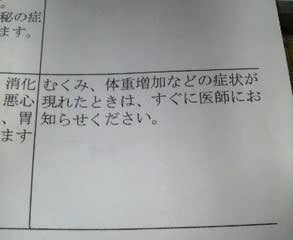 秘の症
ます。
消化
悪心
、胃
ます
むくみ、体重増加などの症状が
現れたときは、すぐに医師にお
知らせください。